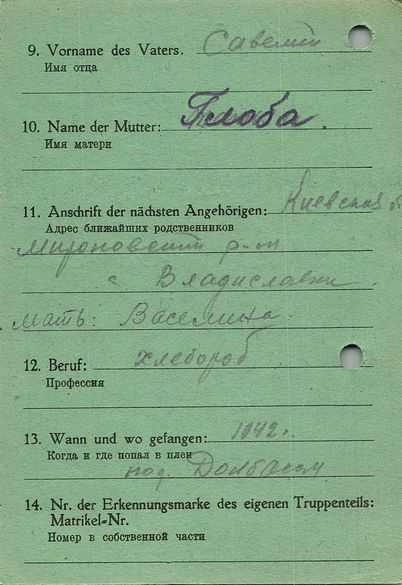 9. Vorname des Vaters. Савелий
Имя отца
10. Name der Mutter: Глоба.
Имя матери
11. Anschrift der nächsten Angehörigen: Киевская
Адрес ближайших родственников
Мироновский р-он
с Владиславка
мать: Васемина
12. Beruf: хлебороб
Профессия
13. Wann und wo gefangen: 1942 г.
Когда и где попал в плен
под Донбасом
14. Nr. der Erkennungsmarke des eigenen Truppenteils:
Matrikel-Nr.
Номер в собственной части